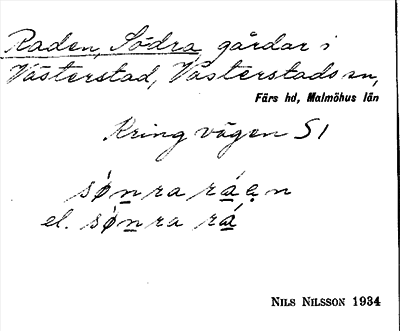 Raden, Södra, gårdar i
Västerstad, Västerstads sn,
Färs hd, Malmöhus län
Kring vägen S 1
sø̀n̲ra rá̲ẹn
el. sø̀n̲ra rá̲
NILS NILSSON 1934